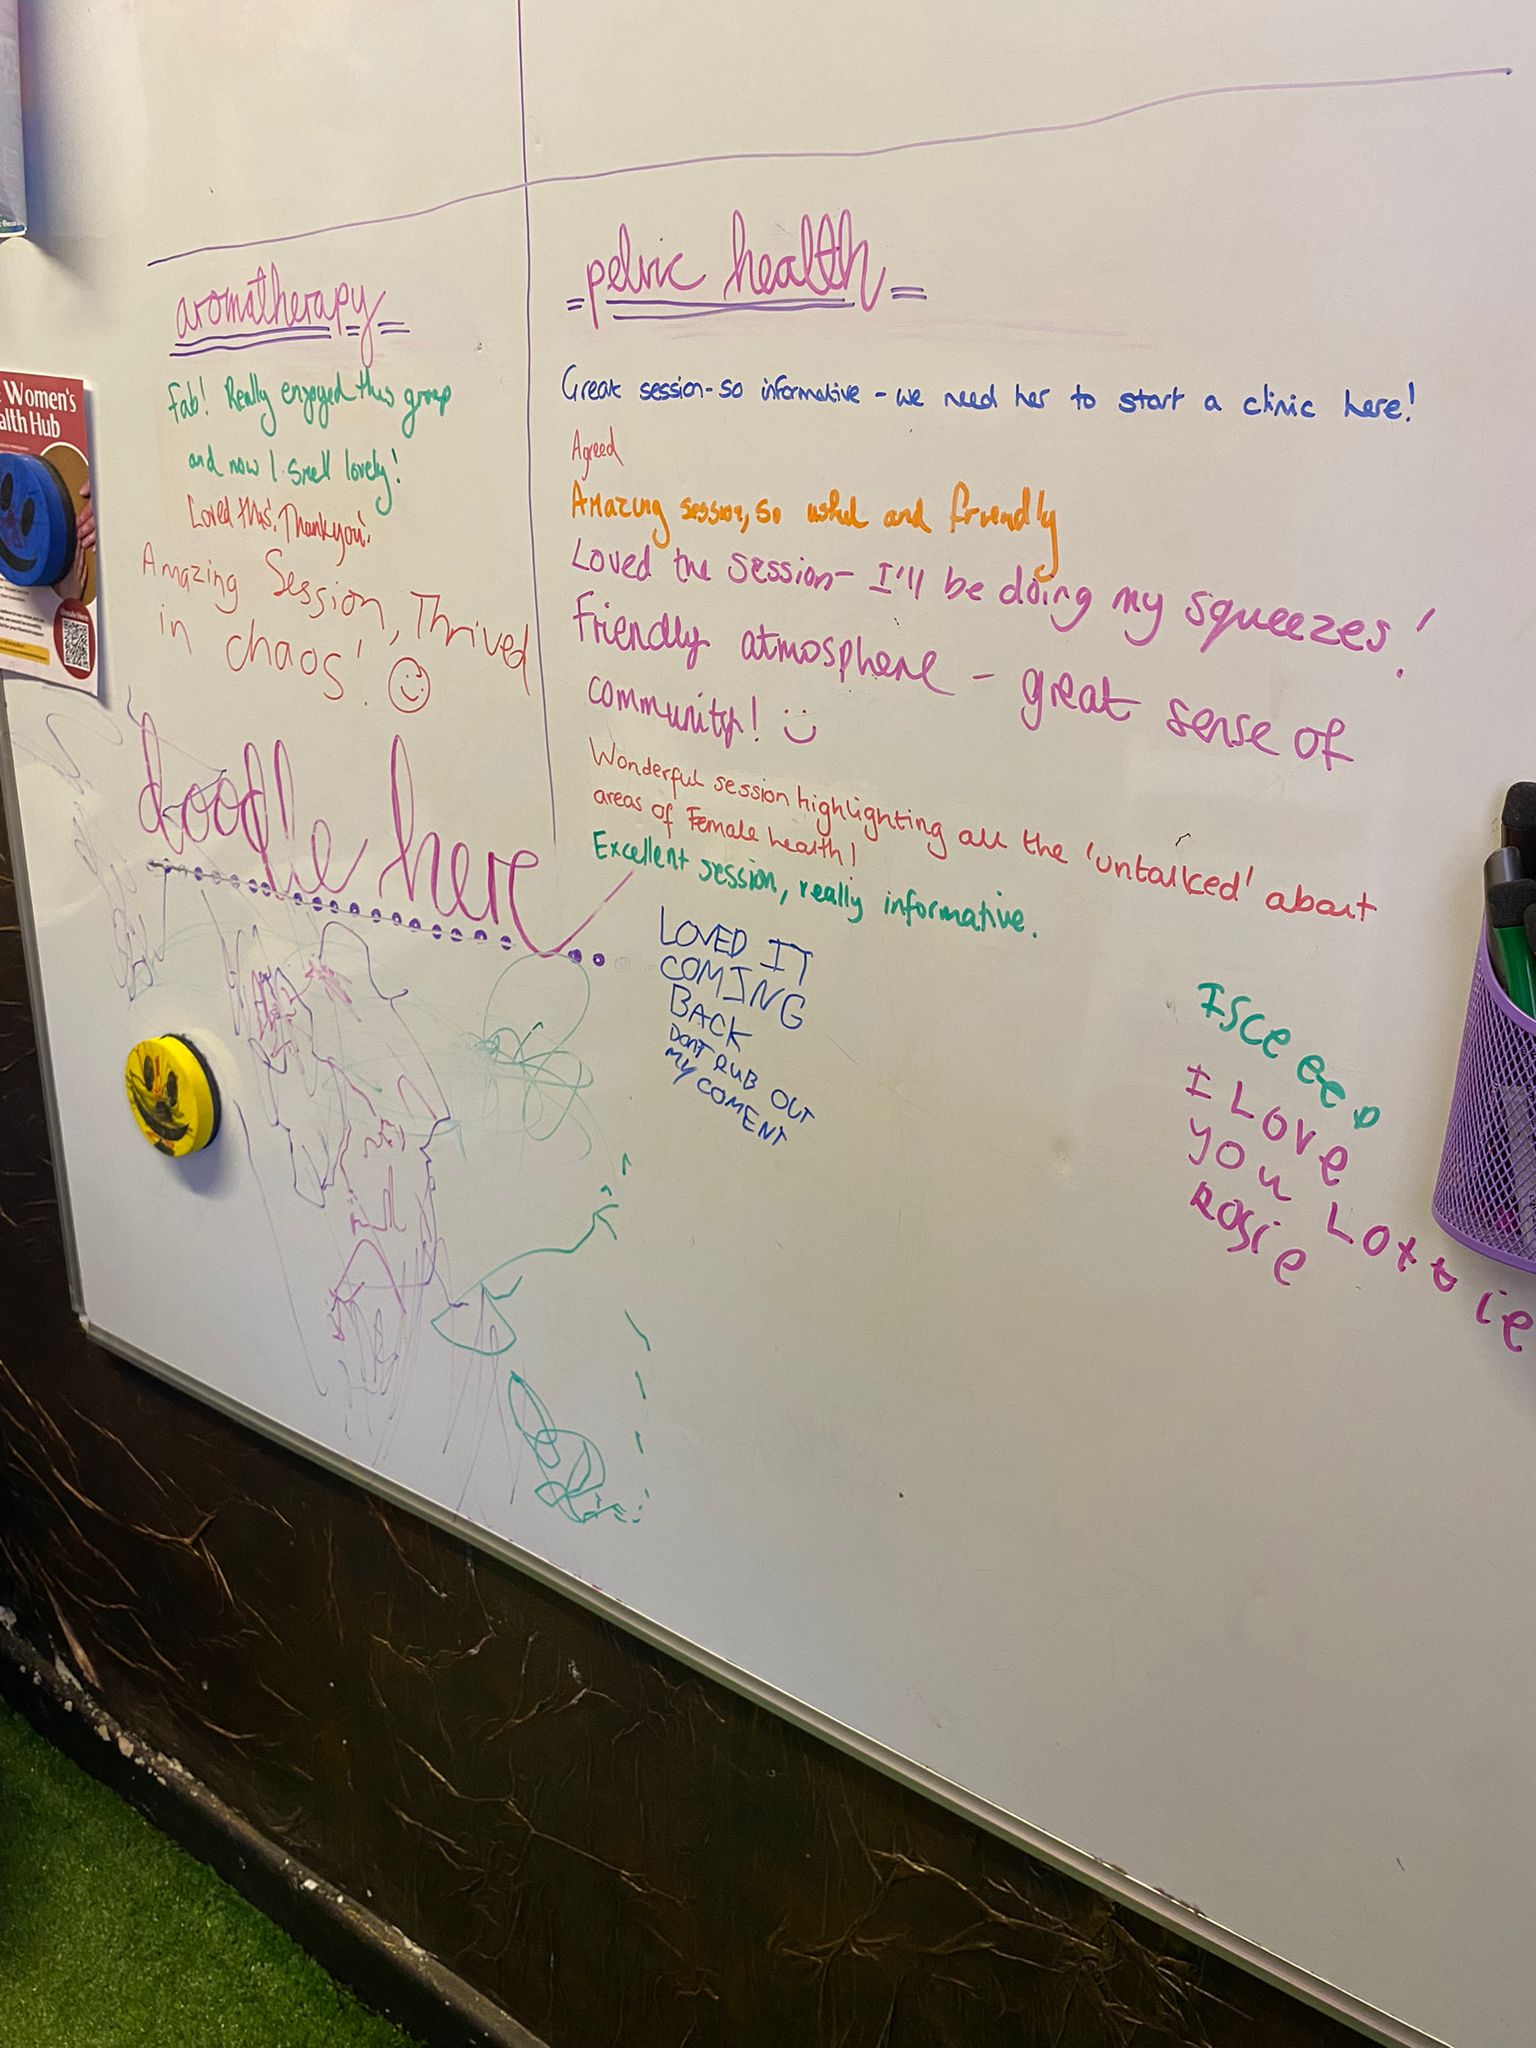 aromatherapy
Fab! Really enjoyed this group
and now I smell lovely!
Loved this! Thankyou!
Amazing Session, Thrived
in chaos!
pelvic health
Great session - so informative - we need her to start a clinic here!
Agreed
Amazing session, so useful and friendly
Loved the session - I'll be doing my squeezes!
Friendly atmosphere - great sense of
community!
Wonderful session highlighting all the 'untalked' about
areas of Female health!
Excellent session, really informative.
LOVED IT
COMING
BACK
DONT RUB OUT
MY COMENT
doodle here
I LOVE
YOU LOTTIE
ROSIE
Women's
alth Hub